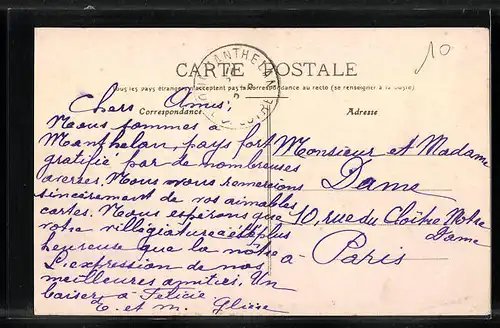 10
MANTHELAN
CARTE POSTALE
Tous les pays étrangers n'acceptent pas la correspondance au recto (se renseigner à la poste)
Correspondance
Adresse
Chers Amis,
Nous sommes à
Manthelan, pays fort
gratifié par de nombreuses
averses. Nous vous remercions
sincèrement de vos aimables
cartes. Nous espérons que
votre villégiature a été plus
heureuse que la nôtre
L'expression de nos
meilleures amitiés. Un
baiser à Félicie
E. et M.
Monsieur et Madame
Dame
10, rue du Cloître Notre
Dame
à Paris